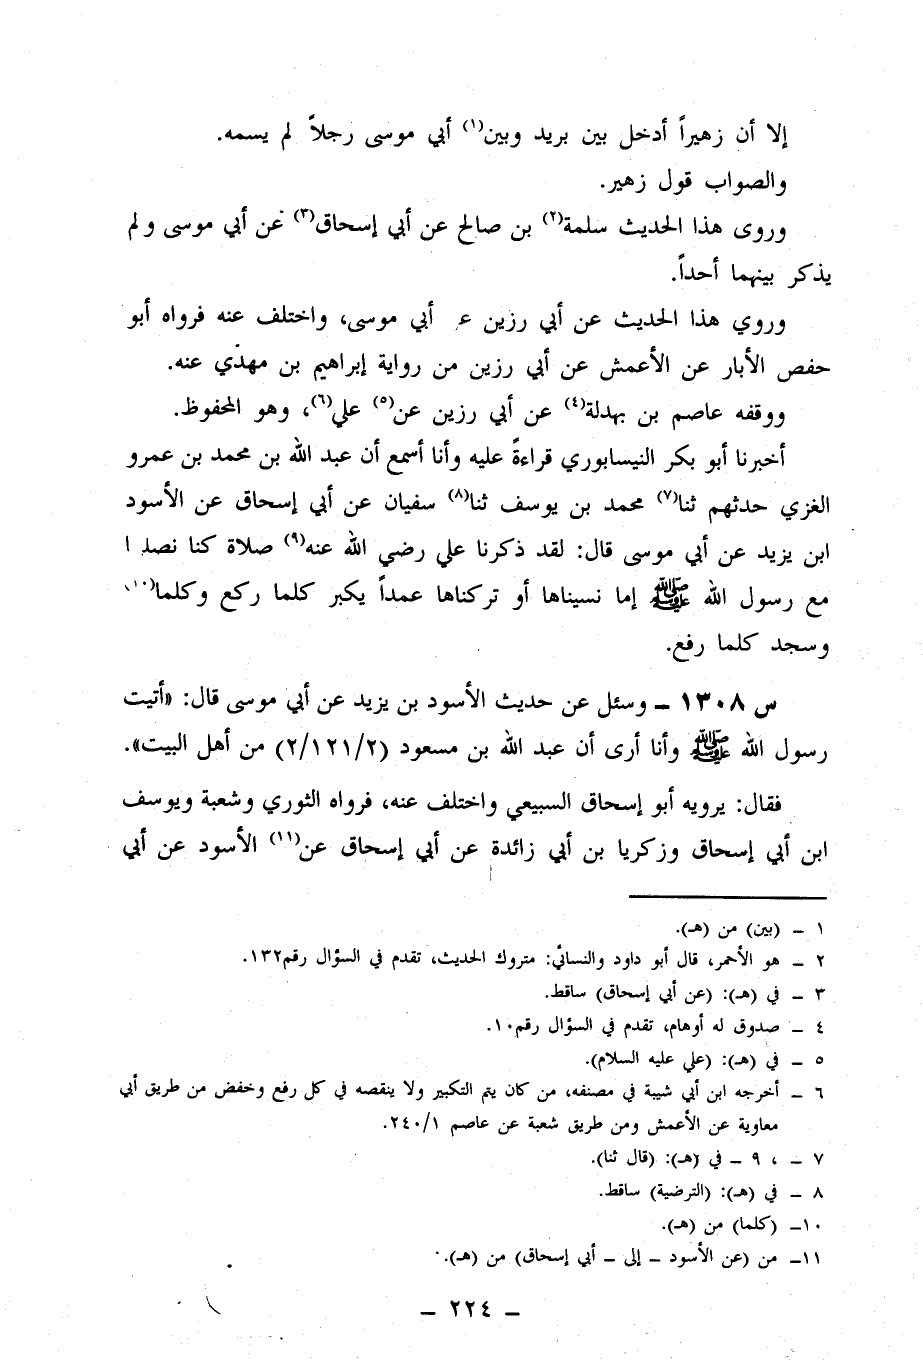 إلا أن زهيراً أدخل بين بريد وبين(١) أبي موسى رجلاً لم يسمه.
والصواب قول زهير.
وروى هذا الحديث سلمة(٢) بن صالح عن أبي إسحاق(٣) عن أبي موسى ولم
يذكر بينهما أحداً.
وروي هذا الحديث عن أبي رزين عـ أبي موسى، واختلف عنه فرواه أبو
حفص الأبار عن الأعمش عن أبي رزين من رواية إبراهيم بن مهدي عنه.
ووقفه عاصم بن بهدلة(٤) عن أبي رزين عن(٥) علي(٦)، وهو المحفوظ.
أخبرنا أبو بكر النيسابوري قراءةً عليه وأنا أسمع أن عبد الله بن محمد بن عمرو
الغزي حدثهم ثنا(٧) محمد بن يوسف ثنا(٨) سفيان عن أبي إسحاق عن الأسود
ابن يزيد عن أبي موسى قال: لقد ذكرنا علي رضي الله عنه(٩) صلاة كنا
مع رسول الله ﷺ إما نسيناها أو تركناها عمداً يكبر كلما ركع وكلما(١٠)
وسجد كلما رفع.
س ١٣٠٨ – وسئل عن حديث الأسود بن يزيد عن أبي موسى قال: «أتيت
رسول الله ﷺ وأنا أرى أن عبد الله بن مسعود (٢/١٢١/٢) من أهل البيت».
فقال: يرويه أبو إسحاق السبيعي واختلف عنه، فرواه الثوري وشعبة ويوسف
ابن أبي إسحاق وزكريا بن أبي زائدة عن أبي إسحاق عن(١١) الأسود عن أبي
١ – (بين) من (هـ).
٢ – هو الأحمر، قال أبو داود والنسائي: متروك الحديث، تقدم في السؤال رقم١٣٢.
٣ – في (هـ): (عن أبي إسحاق) ساقط.
٤ – صدوق له أوهام، تقدم في السؤال رقم١٠.
٥ – في (هـ): (علي عليه السلام).
٦ – أخرجه ابن أبي شيبة في مصنفه، من كان يتم التكبير ولا ينقصه في كل رفع وخفض من طريق أبي
معاوية عن الأعمش ومن طريق شعبة عن عاصم ٢٤٠/١.
٧ – ، ٩ – في (هـ): (قال ثنا).
٨ – في (هـ): (الترضية) ساقط.
١٠– (كلما) من (هـ).
١١– من (عن الأسود – إلى – أبي إسحاق) من (هـ).
– ٢٢٤ –